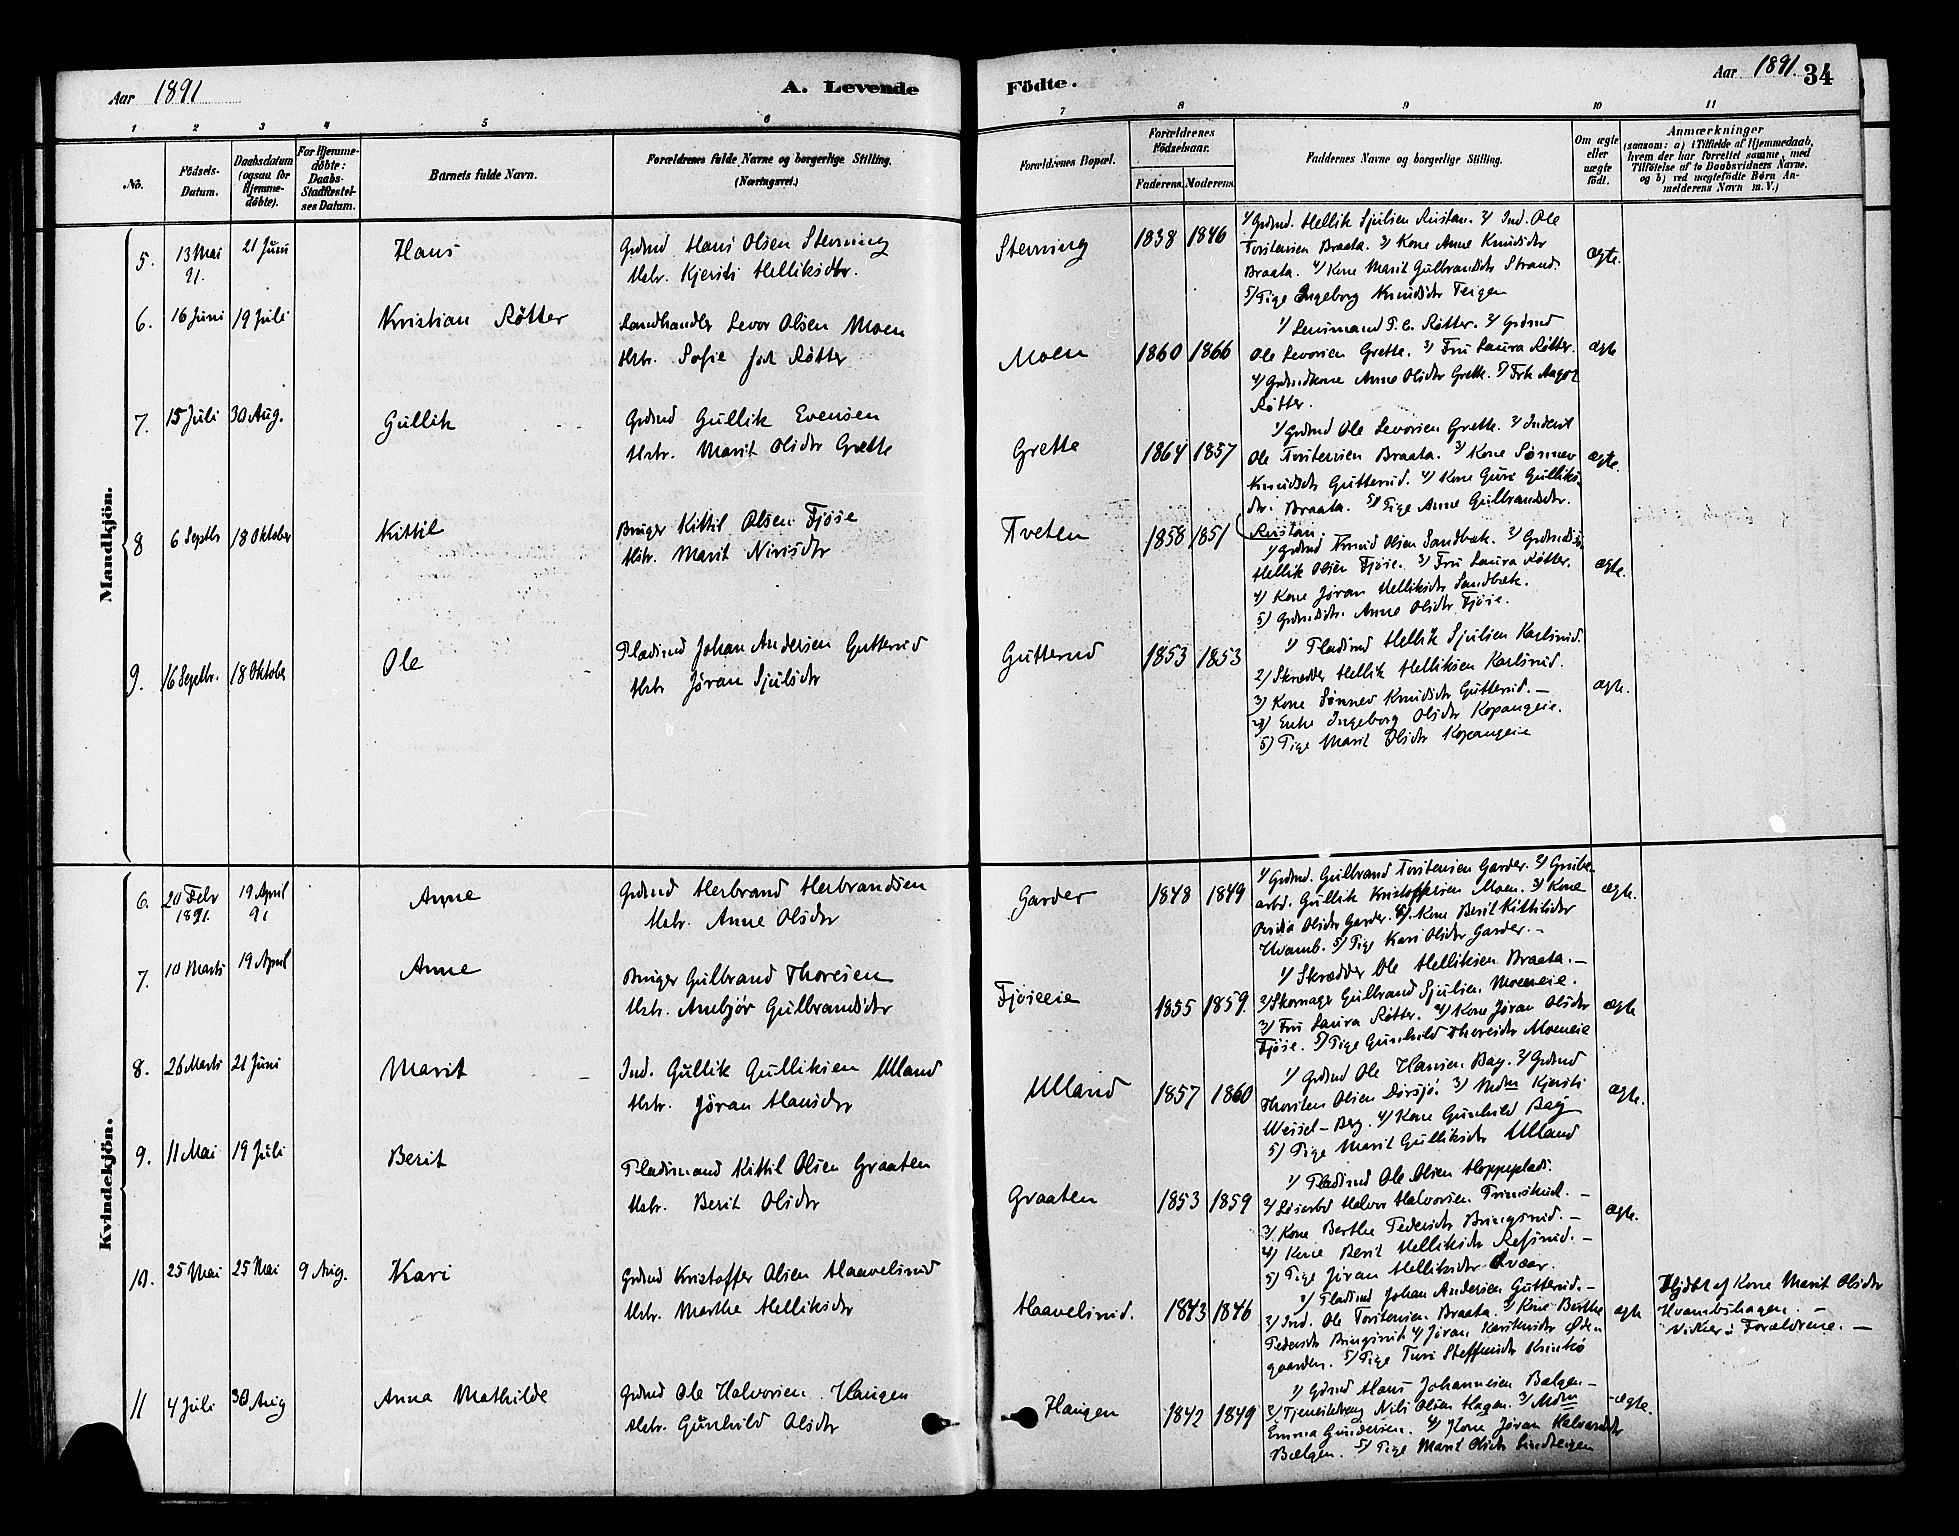 Aar 1891
A. Levende
Födte.
Aar 1891. 34
1 2 3 4 5 6 7 8 9 10 11
No.
Födsels-Datum.
Daabsdatum (ogsaa for Hjemme-döbte).
For Hjemme-döbte: Daabs-Stadfæstel-ses Datum.
Barnets fulde Navn.
Forældrenes fulde Navne og borgerlige Stilling. (Næringsvei.)
Forældrenes Bopæl.
Forældrenes Födselsaar.
Faderens. Moderens.
Faddernes Navne og borgerlige Stilling.
Om ægte eller uægte födt.
Anmærkninger
(saasom: a) i Tilfælde af Hjemmedaab, hvem der har forrettet samme, med Tilföielse af to Daabsvidners Navne, og b) ved uægtefödte Börn An-melderens Navn m. V.)
Mandkjön.
5. 13 Mai 91. 21 Juni Hans
Grdmd Hans Olsen Stevning
Hstr. Kjersti Helliksdtr.
Stevning 1838 1846
1/ Grdmd. Hellik Sjulsen Rustan. 2/ Ind. Ole
Torstensen Braata. 3/ Kone Anne Knudsdtr
Braata. 4/ Kone Marit Gulbrandsdtr Strand.
5/ Pige Ingeborg Knudsdtr Teigen
ægte.
6. 16 Juni 19 Juli Kristian Røtter
Landhandler Levor Olsen Moen
Hstr. Sofie Røtter
Moen 1860 1866
1/ Lensmand Røtter. 2/ Grdmd
Ole Levorsen Grette. 3/ Fru Laura Røtter.
4/ Grdmdkone Anne Olsdtr Grette. 5/ Frk Aagot
Røtter.
ægte
7. 15 Juli 30 Aug. Gullik
Grdmd Gullik Evensen
Hstr. Marit Olsdtr Grette
Grette 1864 1857
1/ Grdmd Ole Levorsen Grette. 2/
Ole Torstensen Braata. 3/ Kone Sønnev
Knudsdtr Gutterud. 4/ Kone Guro Gulliks
dtr. Braata. 5/ Pige Anne Gulbrandsdtr.
Rustan.
ægte.
8 6 Septbr 18 Oktober Kittil
Bruger Kittil Olsen Fjøse
Hstr. Marit Nirisdtr
Tveten 1858 1851
1/ Grdmd Knud Olsen Sandbæk. 2/
Hellik Olsen Fjøse. 3/ Fru Laura Røtter.
4/ Kone Jøran Helliksdtr Sandbæk.
5/ Grdmdsdtr. Anne Olsdtr Fjøse.
ægte.
9. 16 Septbr. 18 Oktober Ole
Pladsmd Johan Andersen Gutterud
Hstr Jøran Sjulsdtr
Gutterud 1853 1853
1/ Pladsmd Hellik Sjulsen Karlsrud.
2/ Skrædder Hellik Helliksen Karlsrud.
3/ Kone Sønnev Knudsdtr Gutterud. —
4/ Enke Ingeborg Olsdtr Kopangeie.
5/ Pige Marit Olsdtr Kopangeie
ægte.
Kvindekjön.
6. 20 Febr 1891. 19 April 91 Anne
Grdmd Herbrand Herbrandsen
Hstr. Anne Olsdtr
Garder 1848 1849
1/ Grdmd. Gulbrand Torstensen Garder. 2/ Grube
arbd. Gullik Kristoffersen Moen. 3/ Kone
Olsdtr Garder. 4/ Kone Berit Kittilsdtr
Hvamb. 5/ Pige Kari Olsdtr Garder. —
ægte.
7. 10 Marts 19 April Anne
Bruger Gulbrand Thoresen
Hstr. Anbjør Gulbrandsdtr
Fjøseeie 1855 1859.
1/ Skrædder Ole Helliksen Braata. —
2/ Skomager Gulbrand Sjulsen Moeneie.
3/ Fru Laura Røtter. 4/ Kone Jøran Olsdtr
Fjøse. 5/ Pige Gunhild Thoresdtr Moeneie
ægte
8. 26 Marts 21 Juni Marit
Ind. Gullik Gulliksen Ulland
Hstr. Jøran Hansdtr
Ulland 1857 1860
1/ Grdmd Ole Hansen Bag. 2/ Grdmd
Thorsten Olsen Dorsjø. 3/ Mdm Kjersti
Wessel-Berg. 4/ Kone Gunhild Bag
5/ Pige Marit Gulliksdtr Ulland
ægte.
9. 11 Mai 19 Juli Berit
Pladsmand Kittil Olsen Graaten
Hstr. Berit Olsdtr
Graaten 1853 1859
1/ Pladsmd Ole Olsen Hoppeplads.
2/ Løsarbd Halvor Halvorsen —
3/ Kone Berthe Pedersdtr Bringsrud. —
4/ Kone Berit Helliksdtr Refsrud. —
5/ Pige Jøran Helliksdtr
ægte.
10. 25 Mai 25 Mai 9 Aug. Kari
Grdmd Kristoffer Olsen Haavelsrud
Hstr. Marthe Helliksdtr
Haavelsrud. 1843 1846
1/ Pladsmd Johan Andersen Gutterud. —
2/ Ind. Ole Torstensen Braata. 3/ Kone Berthe
Pedersdtr 4/ Jøran Øde
gaarden. 5/ Pige Turi Steffensdtr
ægte
Hjdbt af Kone Marit Olsdtr
Hvambshagen. —
Vidner: Forældrene. —
11 4 Juli 30 Aug Anna Mathilde
Grdmd Ole Halvorsen Haugen
Hstr. Gunhild Olsdtr
Haugen 1842 1849
1/ Grdmd Hans Johannesen Bælgen —
2/ Tjenestedreng Nils Olsen Hagen. 3/ Mdm
Emma Gundersen. 4/ Kone Jøran Halvorsdtr
Bælgen. 5/ Pige Marit Olsdtr
ægte.